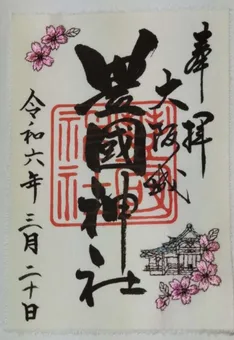 奉拝
大阪城
豊國神社
令和六年三月二十日